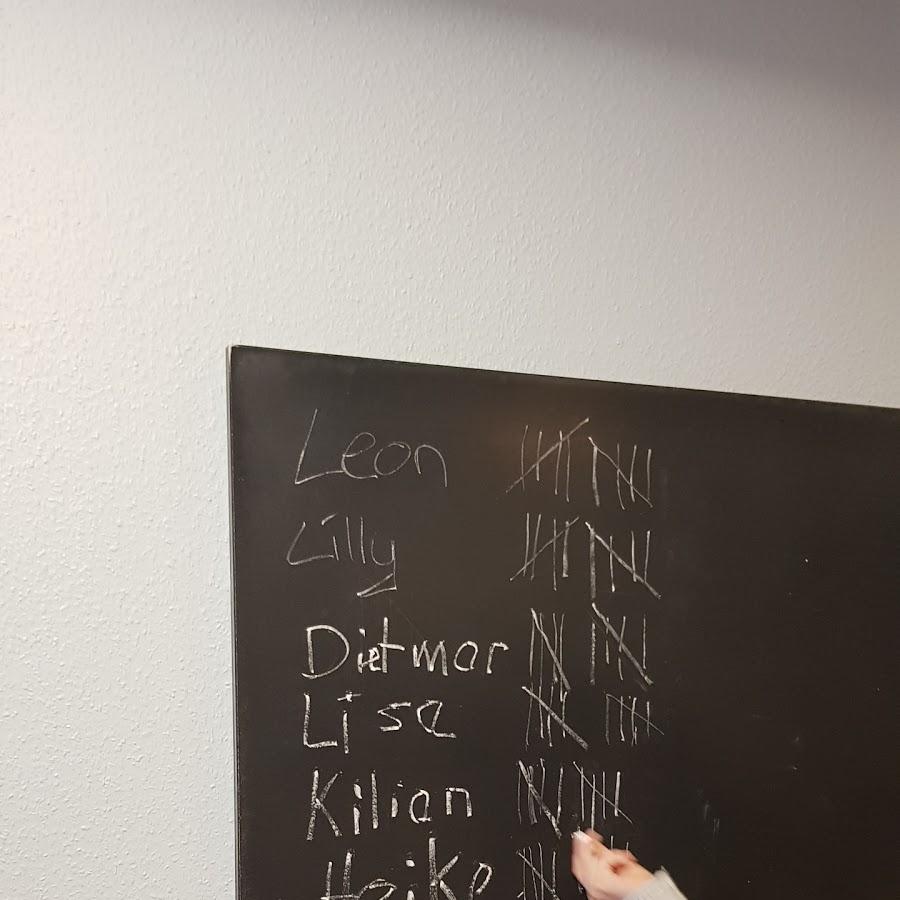 Leon
Lilly
Dietmar
Lise
Kilian
Heike